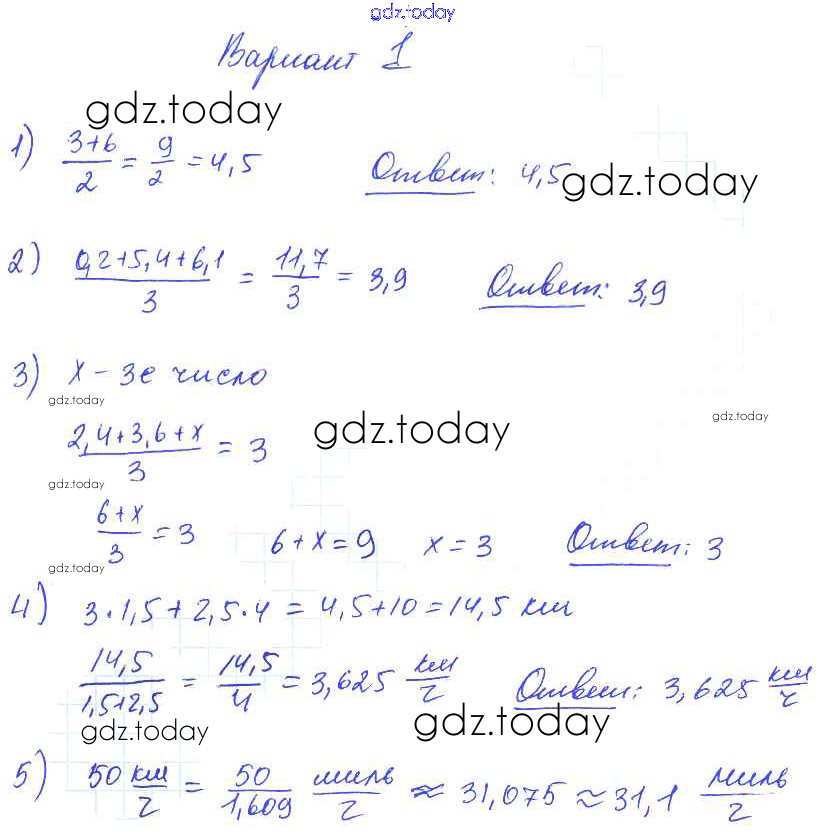 gdz.today
Вариант 1
gdz.today
1) (3+6)/2 = 9/2 = 4,5 Ответ: 4,5
gdz.today
2) (0,2+5,4+6,1)/3 = 11,7/3 = 3,9 Ответ: 3,9
3) x – 3е число
gdz.today
gdz.today
gdz.today
(2,4+3,6+x)/3 = 3
gdz.today
(6+x)/3 = 3 6+x=9 x=3 Ответ: 3
gdz.today
4) 3·1,5+2,5·4 = 4,5+10=14,5 км
14,5/(1,5+2,5) = 14,5/4 = 3,625 км/ч Ответ: 3,625 км/ч
gdz.today
gdz.today
5) 50 км/ч = 50/1,609 миль/ч ≈ 31,075 ≈ 31,1 миль/ч